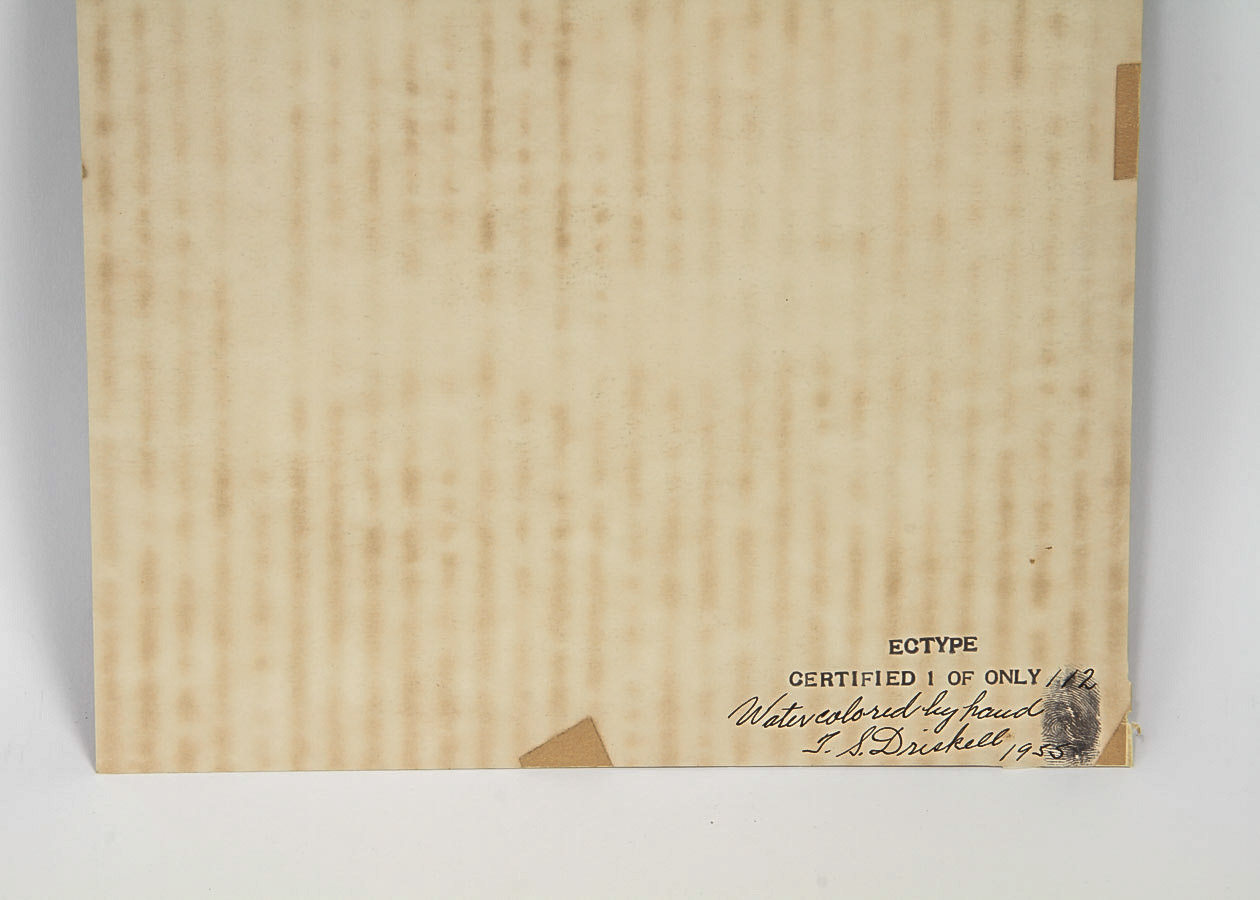 ECTYPE
CERTIFIED 1 OF ONLY 112
Watercolored by hand
T. S. Driskell, 1955